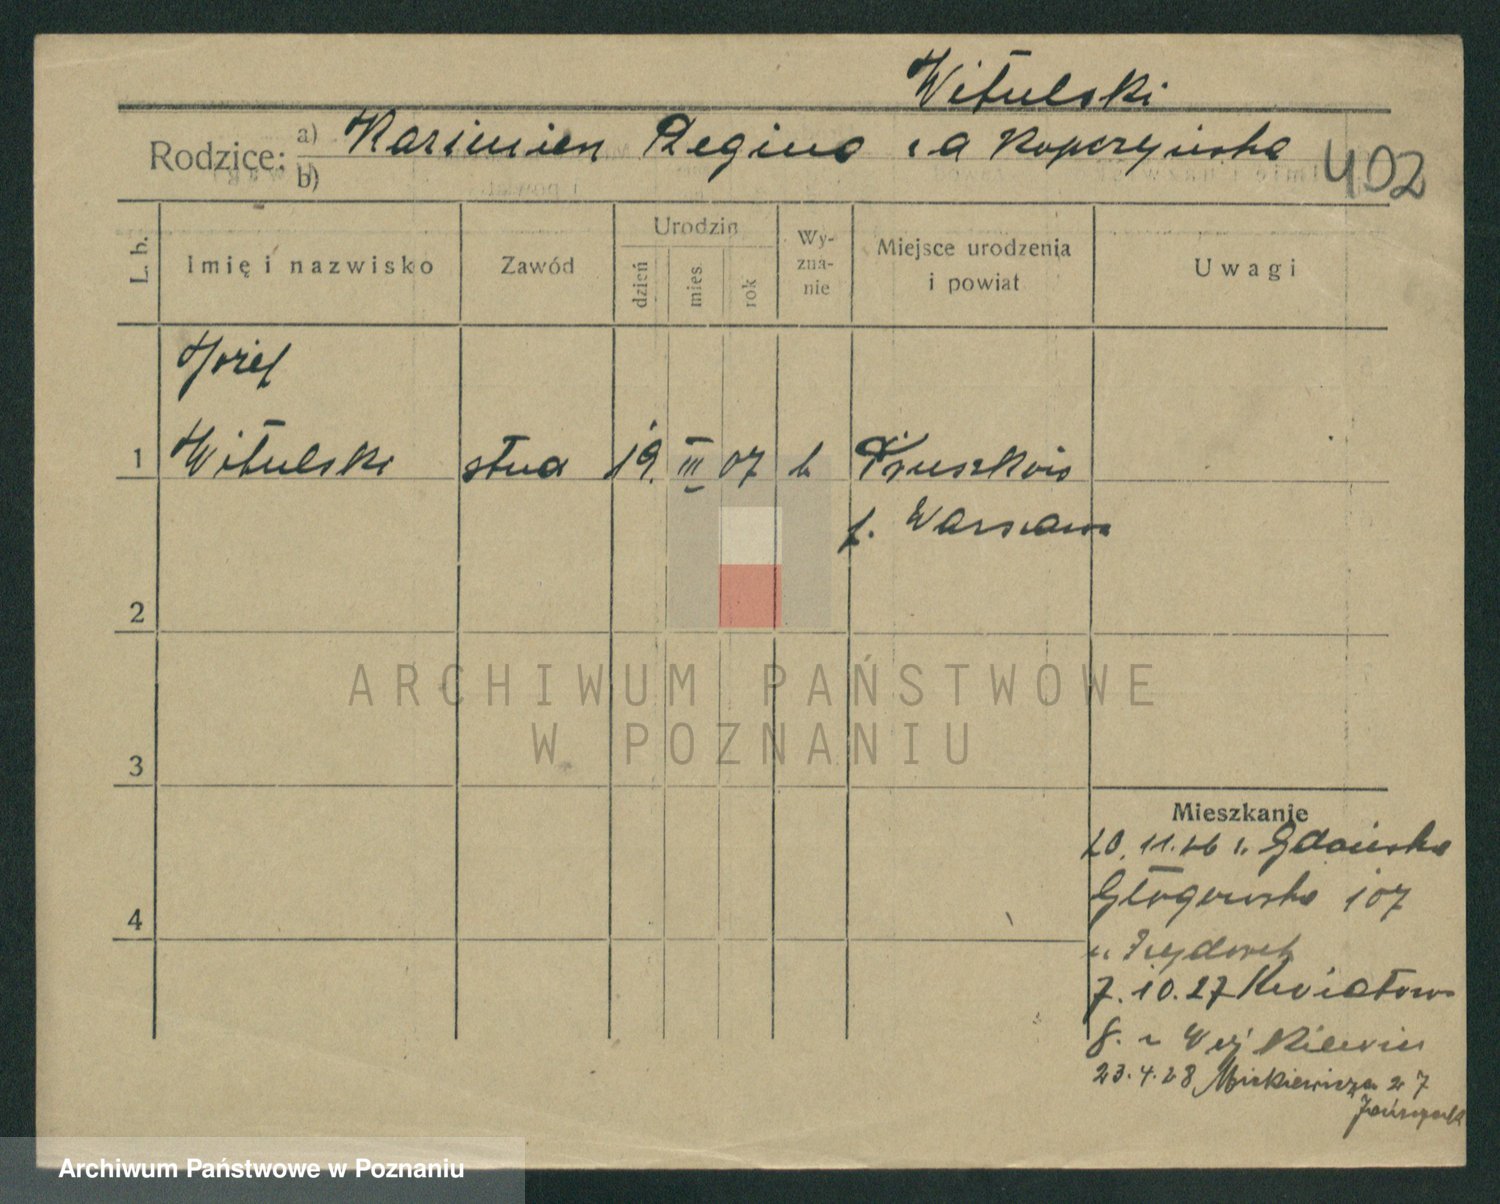 Witulski
Rodzice: a) Kazimierz Regina z d Kopczyńska 402
b)
L. b.
Imię i nazwisko
Zawód
Urodzin
dzień
mies.
rok
Wy-
zna-
nie
Miejsce urodzenia
i powiat
Uwagi
Józef
1 Witulski stud 19. III 07 k Pruszków
p. Warszawa
2
ARCHIWUM PAŃSTWOWE
W POZNANIU
3
Mieszkanie
20.11.26 z Gdańska
4 Głogowska 107
u
7.10.27 Kwiatowa
8. u
23.4.28 Mickiewicza 27
Archiwum Państwowe w Poznaniu